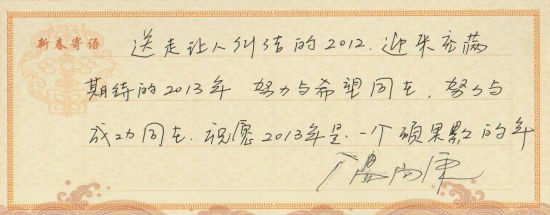 新春寄语
送走让人纠结的2012.迎来充满
期待的2013年 努力与希望同在,努力与
成功同在.祝愿2013年是一个硕果累累的年